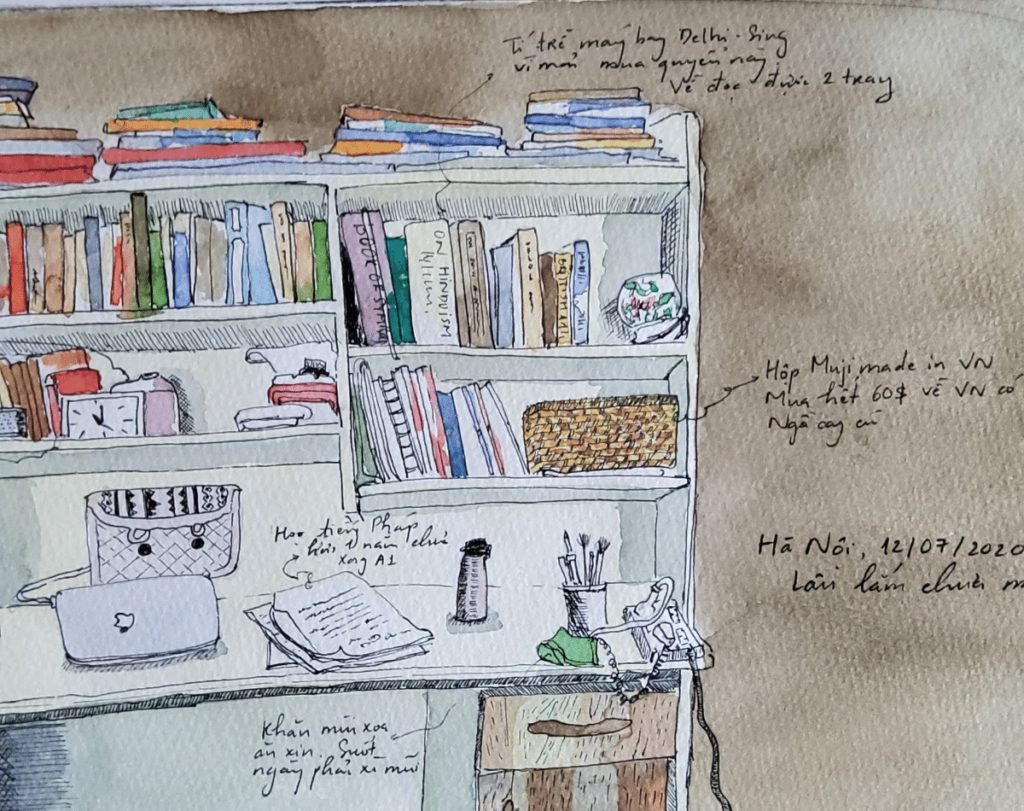 Tí trễ máy bay Delhi - Sing
vì mải mua quyển này.
Về đọc được 2 trang
ON HINDUISM
Hộp Muji made in VN
Mua hết 60$ về VN có
Ngã cay cú
Học tiếng Pháp
hơn 1 năm chưa
xong A1
Hà Nội, 12/07/2020
Lâu lắm chưa
Khăn mùi xoa
ăn xin. Suốt
ngày phải xì mũi